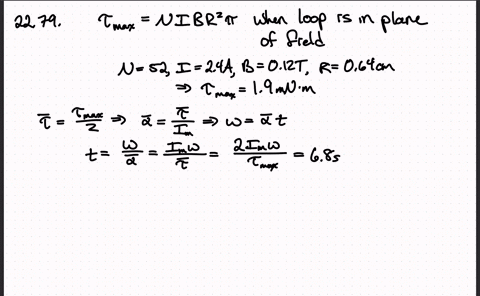 22.79. τmax = NIBR²π when loop is in plane
of field
N = 52, I = 24A, B = 0.12T, R = 0.64cm
⇒ τmax = 1.9mN·m
τ̄ = τmax/2 ⇒ ᾱ = τ̄/Im ⇒ ω = ᾱt
t = ω/ᾱ = Imω/τ̄ = 2Imω/τmax = 6.8s